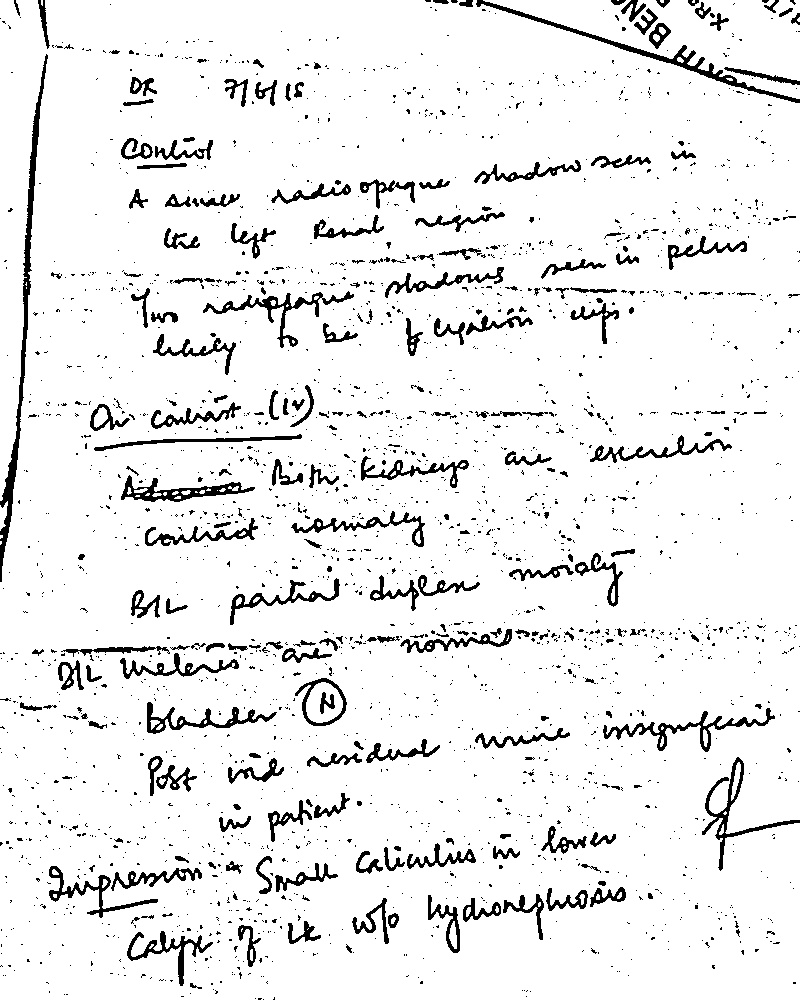 NORTH BENG
X-Ra
DR 7/6/15
Control
A small radio opaque shadow seen in
the left Renal region.
Two radiopaque shadows seen in pelvis
likely to be of ligation clips.
On contrast (IV)
Both kidneys are excretion
contrast normally.
B/L partial duplex moiety
B/L Ureteres are normal
Bladder N
Post void residual urine insignificant
in patient.
Impression - Small Caliculus in lower
Calyx of LK w/o hydronephrosis.